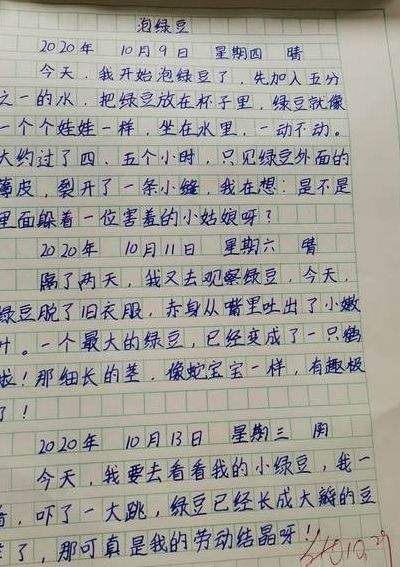 泡绿豆
2020年 10月9日 星期四 晴
今天，我开始泡绿豆了，先加入五分
之一的水，把绿豆放在杯子里，绿豆就像
一个个娃娃一样，坐在水里，一动不动。
大约过了四、五个小时，只见绿豆外面的
薄皮，裂开了一条小缝，我在想：是不是
里面躲着一位害羞的小姑娘呀？
2020年 10月11日 星期六 晴
隔了两天，我又去观察绿豆，今天，
绿豆脱了旧衣服，赤身从嘴里吐出了小嫩
叶。一个最大的绿豆，已经变成了一只鹤
啦！那细长的茎，像蛇宝宝一样，有趣极
了！
2020年 10月13日 星期三 雨
今天，我要去看看我的小绿豆，我一
看，吓了一大跳，绿豆已经长成大瓣的豆
了，那可真是我的劳动结晶呀！
10.29